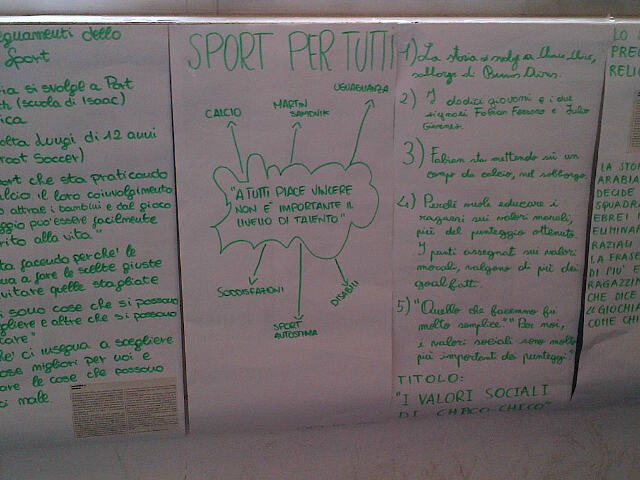 eguamenti dello
Sport
ria si svolge a Port
th (scuola di Isaac)
ica
olta Lungi di 12 anni
root Soccer)
ort che sta praticando
lcio il loro coinvolgimento
attrae i bambini e dal gioco
ggio può essere facilmente
rito alla vita."
ta facendo perché le
ua a fare le scelte giuste
vitare quelle sbagliate
i sono cose che si possono
gliere e altre che si possono
tare"
hé ci insegna a scegliere
ose migliori per noi e
are le cose che possono
ci male.
SPORT PER TUTTI
CALCIO
MARTIN
UGUAGLIANZA
"A TUTTI PIACE VINCERE
NON E' IMPORTANTE IL
LIVELLO DI TALENTO"
SODDISFAZIONI
SPORT
AUTOSTIMA
DISABILI
1) La storia si svolge a
sobborgo di Buenos Aires.
2) I dodici giovani e i due
signori Fabian Ferraro e Julio
3) Fabian sta mettendo su un
campo da calcio, nel sobborgo.
4) Perché vuole educare i
ragazzi sui valori morali,
più del punteggio ottenuto.
I punti assegnati sui valori
morali, valgono di più dei
goal fatti.
5) "Quello che facemmo fu
molto semplice." "Per noi,
i valori sociali sono molto
più importanti dei punteggi"
TITOLO:
"I VALORI SOCIALI
DI CHACO-CHICO"
LO
PRE
RELIG
LA STOR
ARABIA
DECIDE
SQUADR
EBREI
ELIMINAR
RAZIALI
LA FRASE
DI PIU'
RAGAZZIN
CHE DICE
"GIOCHIA
COME CHI